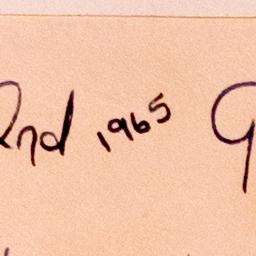 2nd 1965